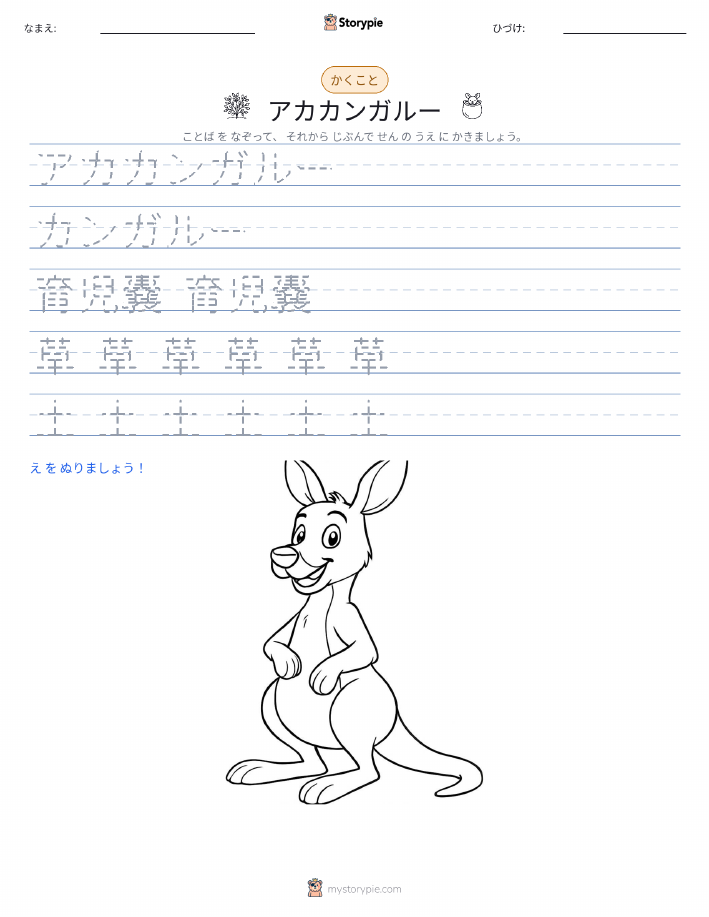 なまえ:
Storypie
ひづけ:
かくこと
アカカンガルー
ことば を なぞって、 それから じぶんで せん の うえ に かきましょう。
アカカンガルー
カンガルー
育児嚢 育児嚢
草 草 草 草 草 草
土 土 土 土 土 土
え を ぬりましょう！
mystorypie.com